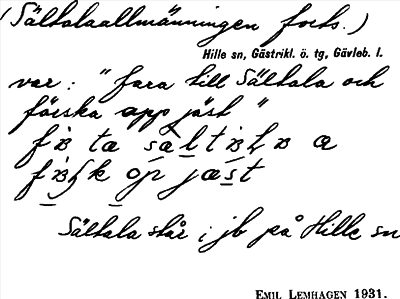 (Sältalaallmänningen forts.)
Hille sn, Gästrikl. ö. tg, Gävleb. l.
var: "fara till Sältala och
färska opp jäst"
Sältala står i jb på Hille sn
EMIL LEMHAGEN 1931.